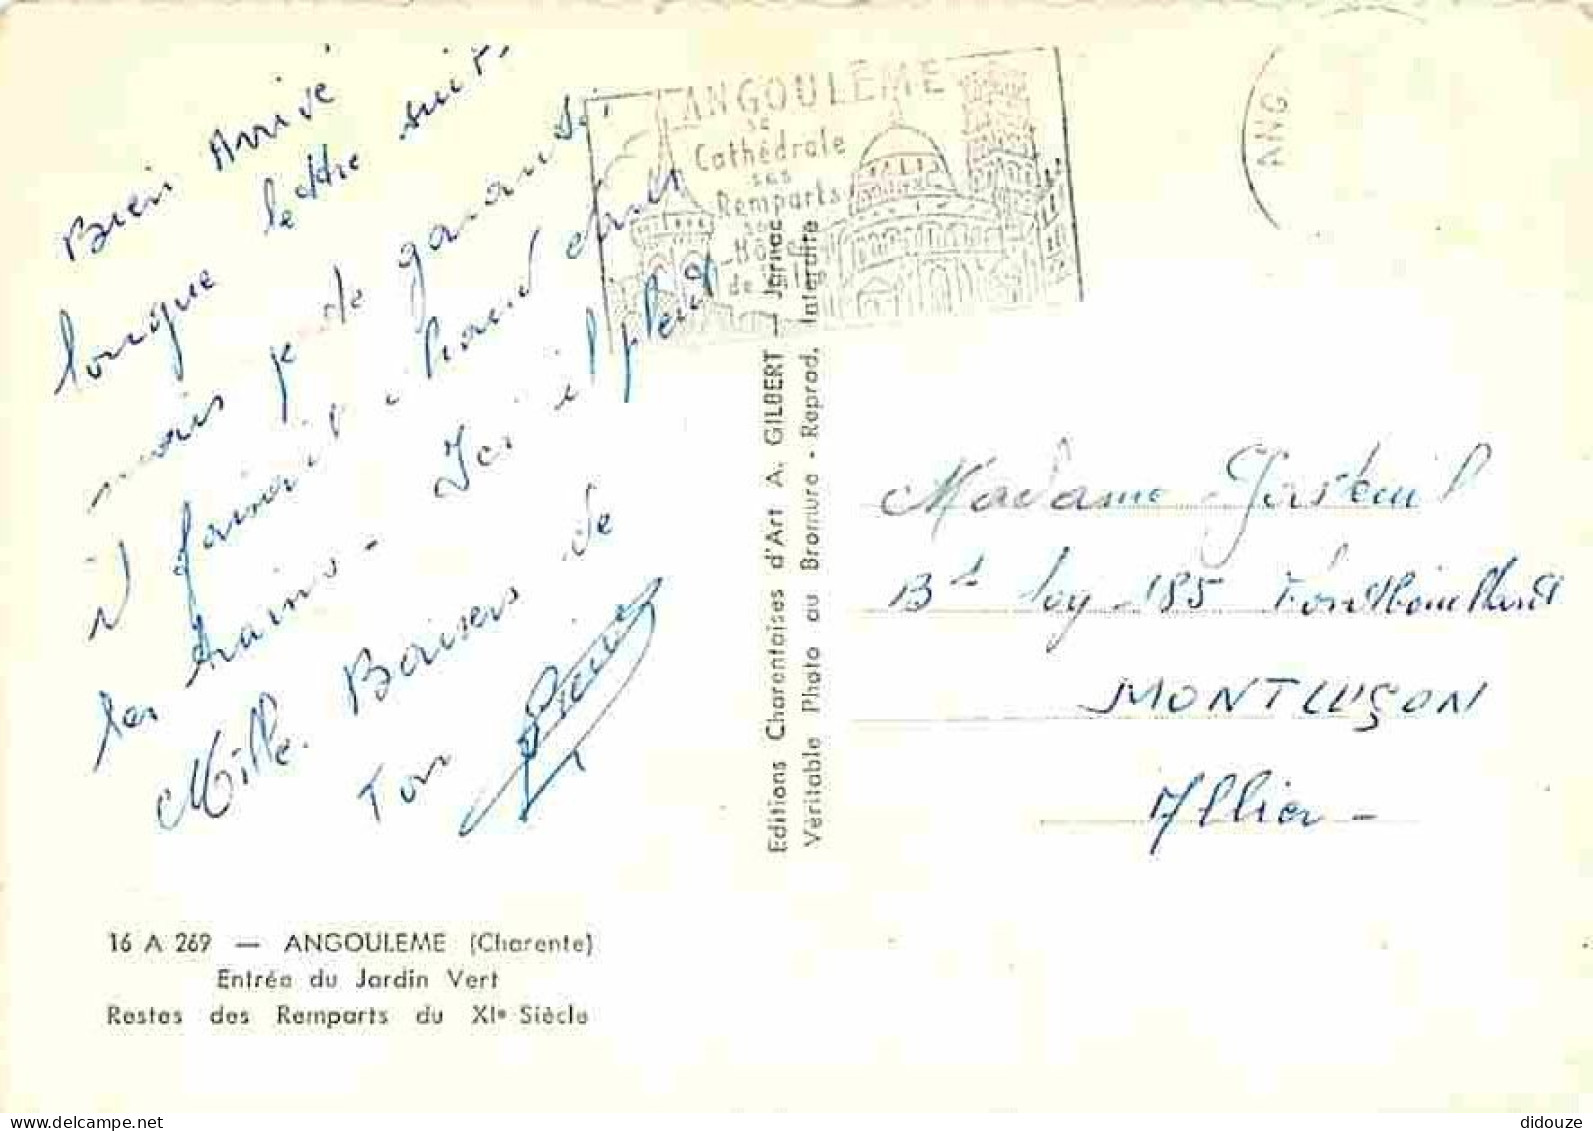 Bien Arrivé
lettre suit,
longue
mais je de garanti si
il fairait chaud dans
les trains - Ici il pleut
Mille Baisers de
Ton
ANGOULEME
sa
Cathédrale
ses
Remparts
son
Hôtel
de Ville
ANG
Editions Charentaises d'Art A. GILBERT — Jarnac
Véritable Photo au Bromure - Reprod. Interdite
Madame Gasteuil
Bd 185
MONTLUÇON
Allier -
16 A 269 — ANGOULEME (Charente)
Entrée du Jardin Vert
Restes des Remparts du XIe Siècle
delcampe.net
didouze